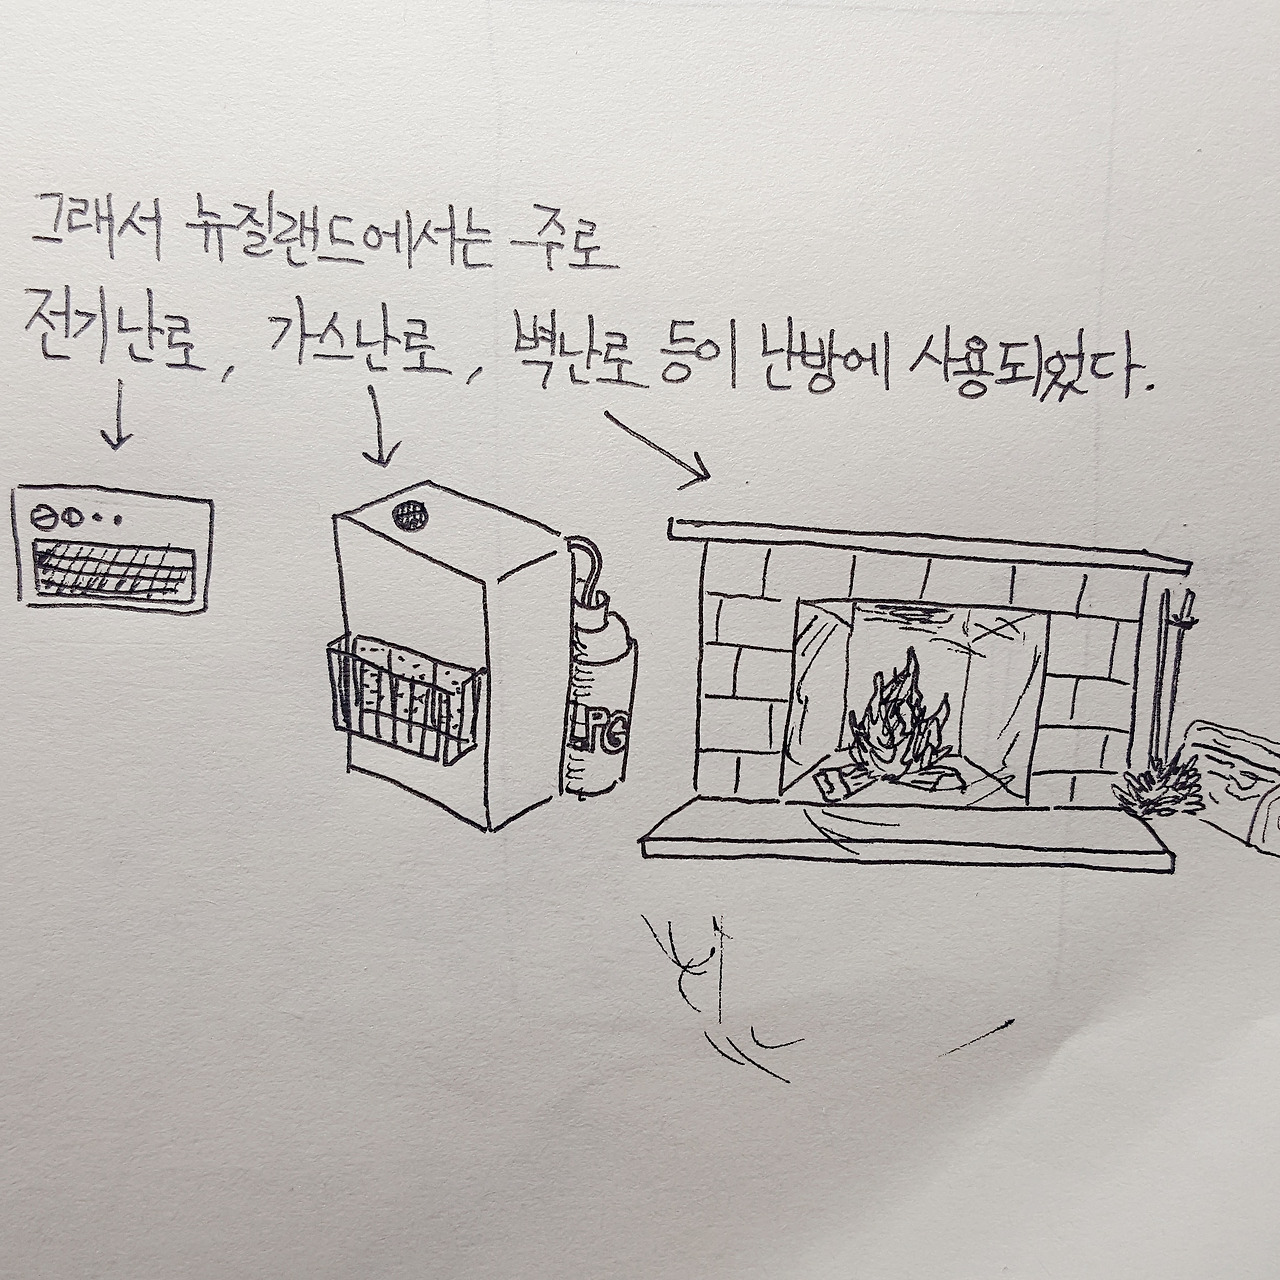 그래서 뉴질랜드에서는 주로
전기난로, 가스난로, 벽난로 등이 난방에 사용되었다.
LPG